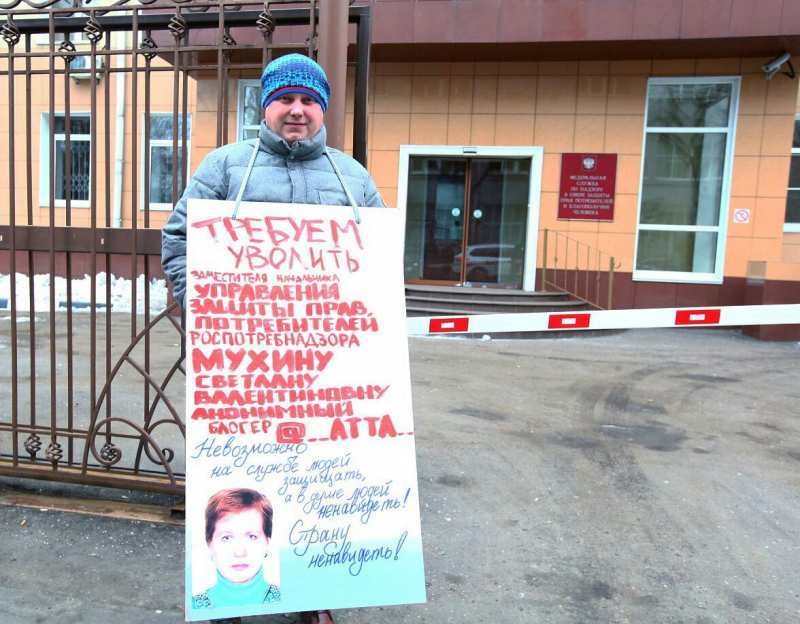 ТРЕБУЕМ
УВОЛИТЬ
ЗАМЕСТИТЕЛЯ НАЧАЛЬНИКА
УПРАВЛЕНИЯ
ЗАЩИТЫ ПРАВ
ПОТРЕБИТЕЛЕЙ
РОСПОТРЕБНАДЗОРА
МУХИНУ
СВЕТЛАНУ
ВАЛЕНТИНОВНУ
АНОНИМНЫЙ
БЛОГЕР @__АТТА__
Невозможно
на службе людей
защищать,
а в душе людей
ненавидеть!
Страну
ненавидеть!
ФЕДЕРАЛЬНАЯ
СЛУЖБА
ПО НАДЗОРУ
В СФЕРЕ ЗАЩИТЫ
ПРАВ ПОТРЕБИТЕЛЕЙ
И БЛАГОПОЛУЧИЯ
ЧЕЛОВЕКА